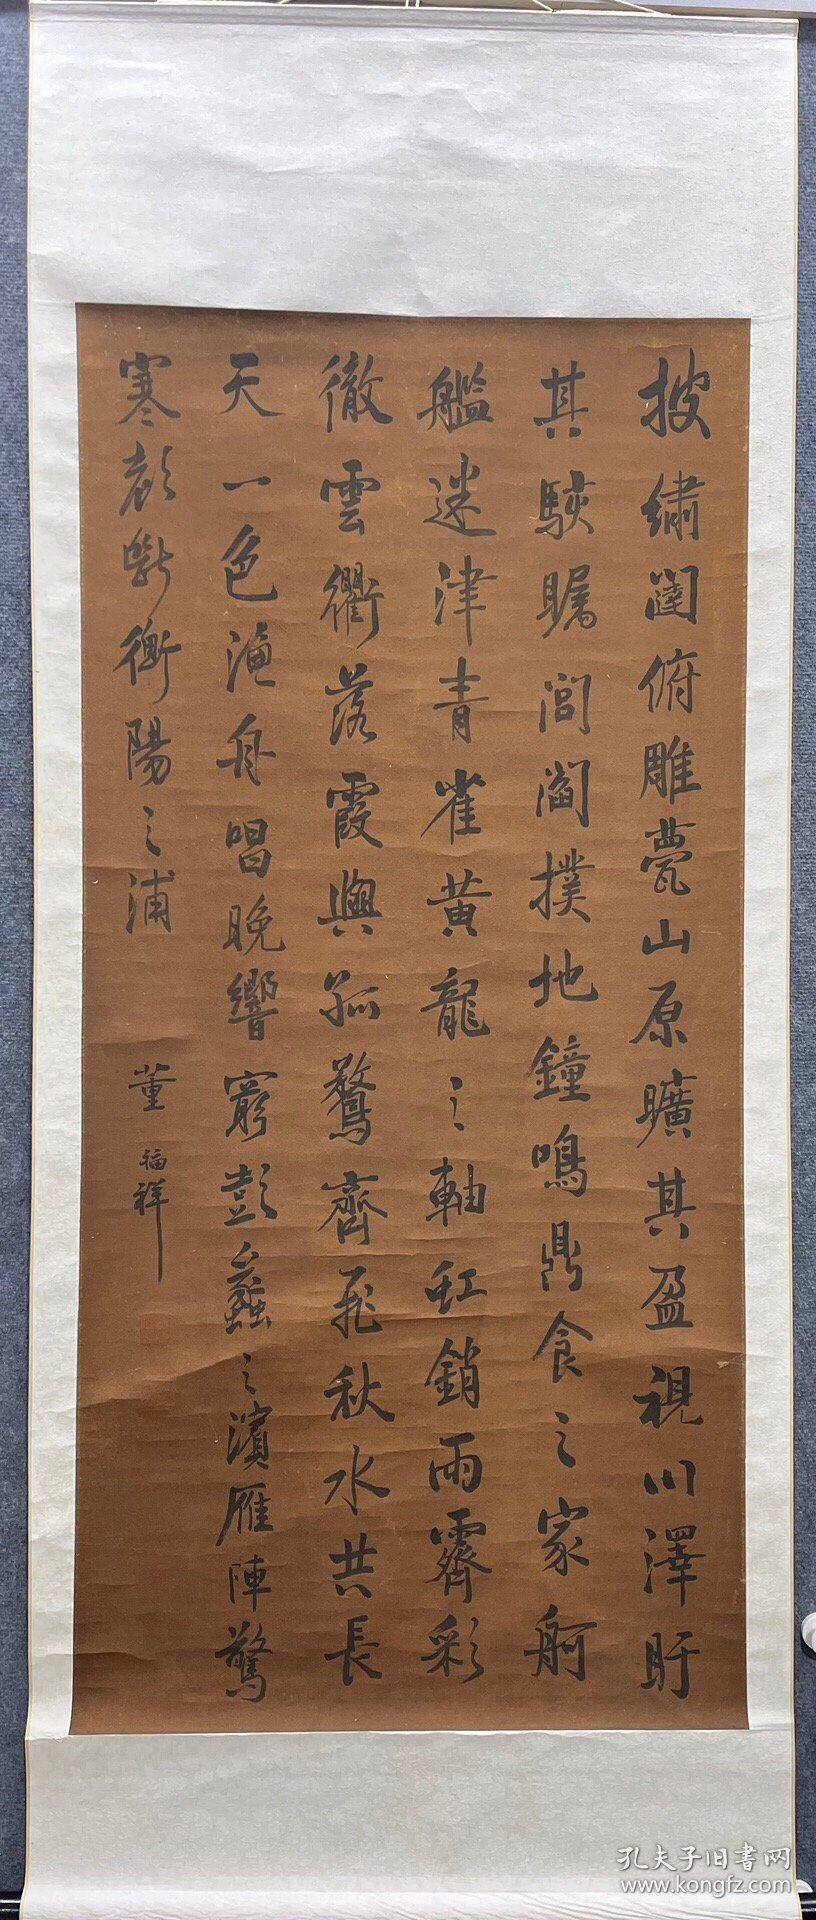 披繡闥俯雕甍山原曠其盈視川澤盱
其駭瞩閭閻撲地鐘鳴鼎食之家舸
艦迷津青雀黄龍之軸虹銷雨霽彩
徹雲衢落霞與孤鶩齊飛秋水共長
天一色漁舟唱晚響窮彭蠡之濱雁陣驚
寒聲斷衡陽之浦
董福祥
孔夫子旧书网
www.kongfz.com